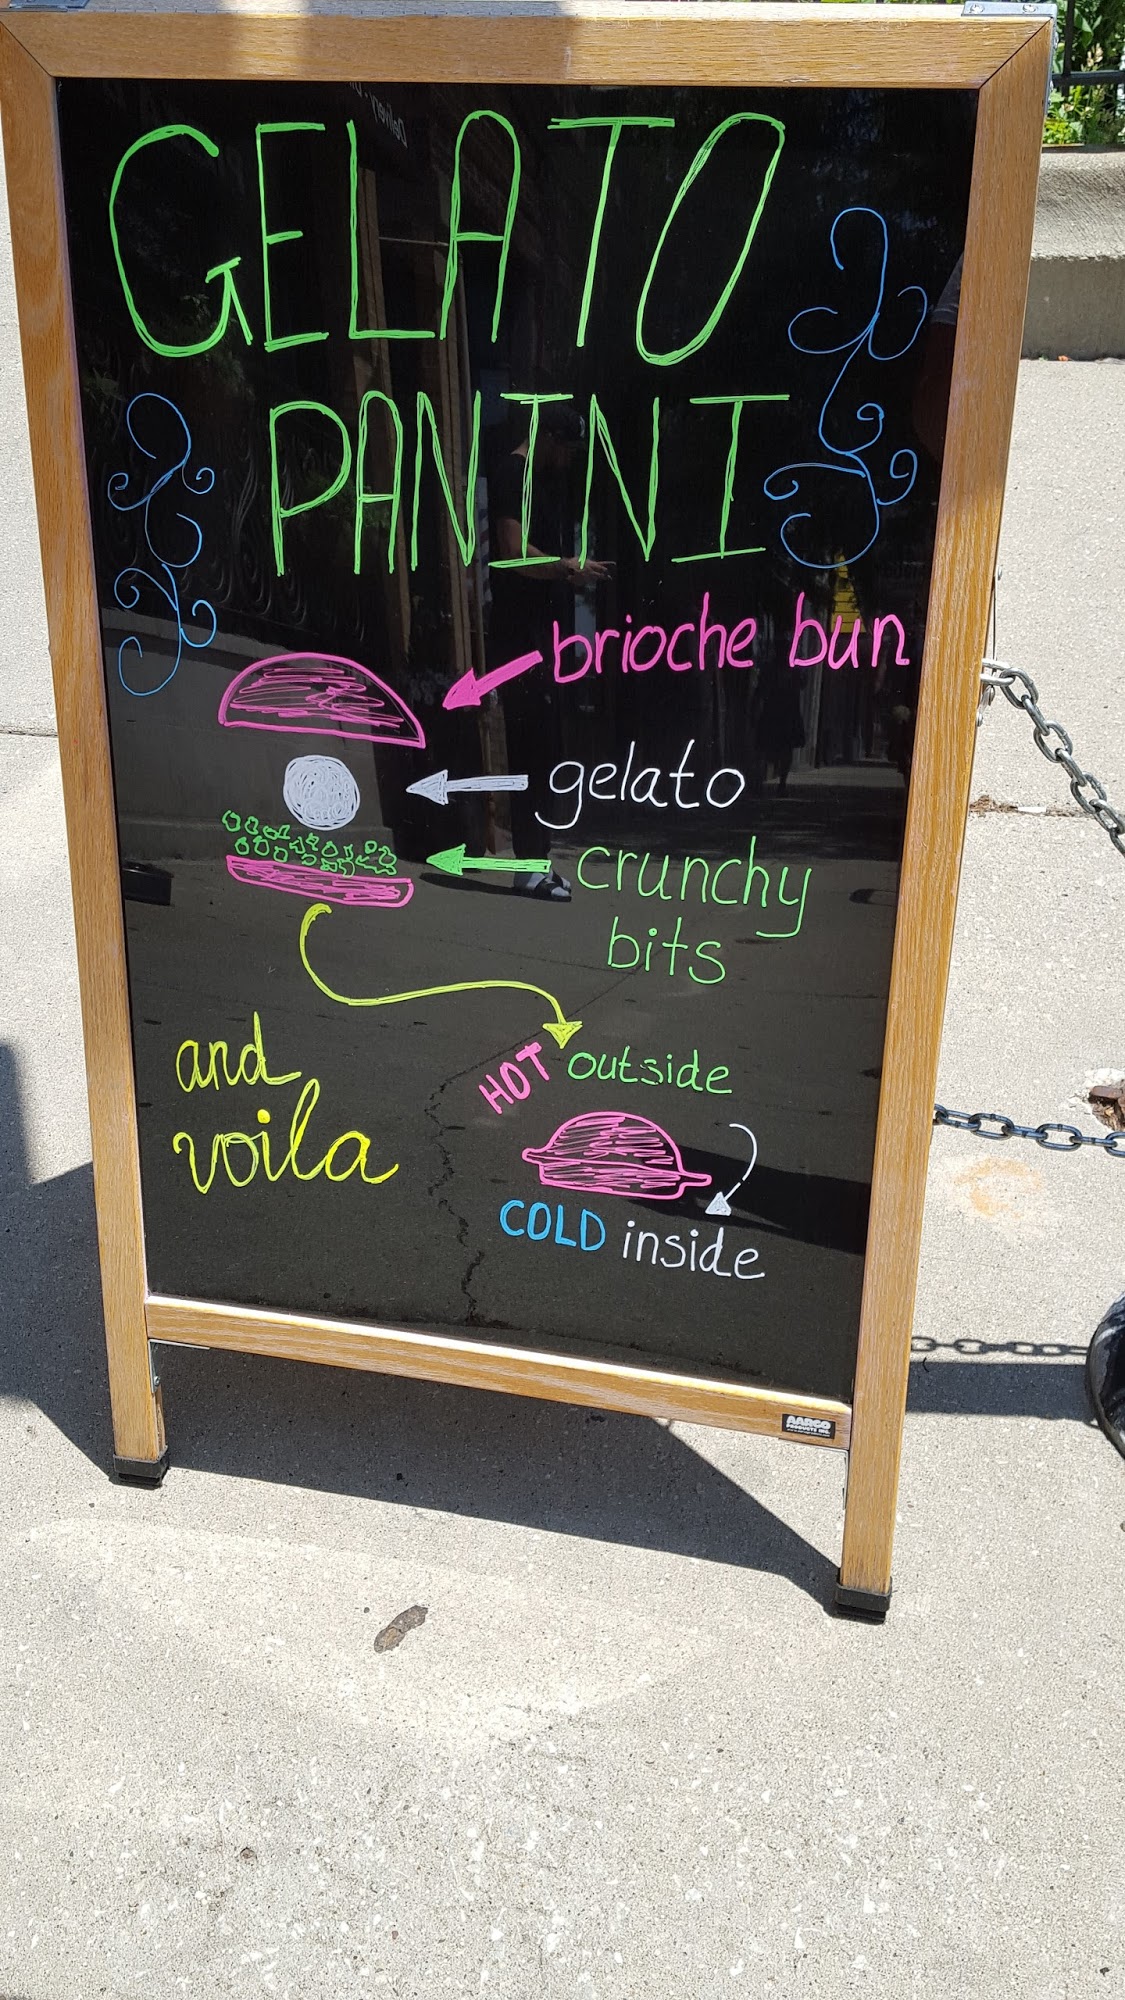 GELATO
PANINI
brioche bun
gelato
crunchy
bits
and
voila
HOT outside
COLD inside
AARCO
PRODUCTS INC.